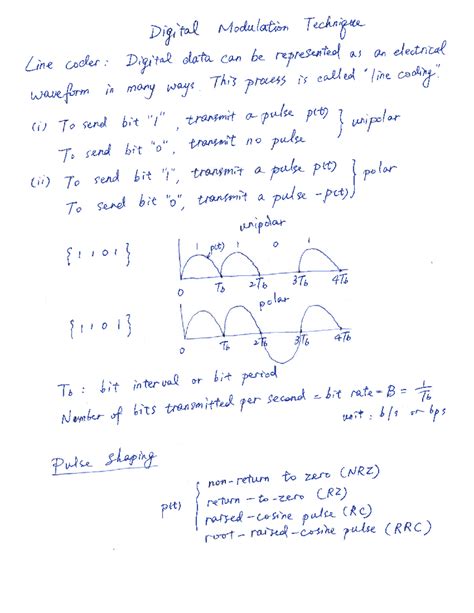 Digital Modulation Technique
Line coder : Digital data can be represented as an electrical
waveform in many ways. This process is called "line coding".
(i) To send bit "1", transmit a pulse p(t) } unipolar
To send bit "0", transmit no pulse
(ii) To send bit "1", transmit a pulse p(t) } polar
To send bit "0", transmit a pulse -p(t)
unipolar
{1 1 0 1} 1 p(t) 1 0 1
0 Tb 2Tb 3Tb 4Tb
polar
{1 1 0 1}
0 Tb 2Tb 3Tb 4Tb
Tb : bit interval or bit period
Number of bits transmitted per second = bit rate = B = 1/Tb
unit : b/s or bps
Pulse Shaping
p(t) { non-return to zero (NRZ)
return-to-zero (RZ)
raised-cosine pulse (RC)
root-raised-cosine pulse (RRC)